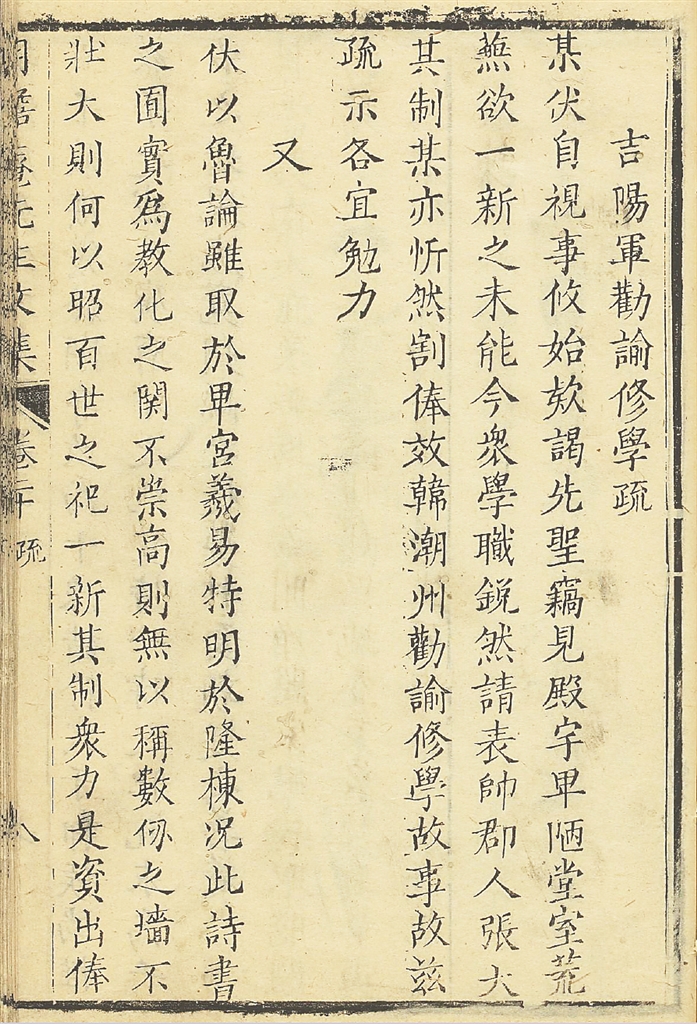 吉陽軍勸諭修學疏
某伏自視事攸始欵謁先聖竊見殿宇卑陋堂室荒
蕪欲一新之未能今衆學職銳然請表帥郡人張大
其制某亦忻然割俸效韓潮州勸諭修學故事故兹
疏示各宜勉力
又
伏以魯論雖取於卑宮羲易特明於隆棟况此詩書
之囿實爲教化之関不崇高則無以稱數仭之墻不
壯大則何以昭百世之祀一新其制衆力是資出俸
胡澹庵先生文集 卷二十 疏 八